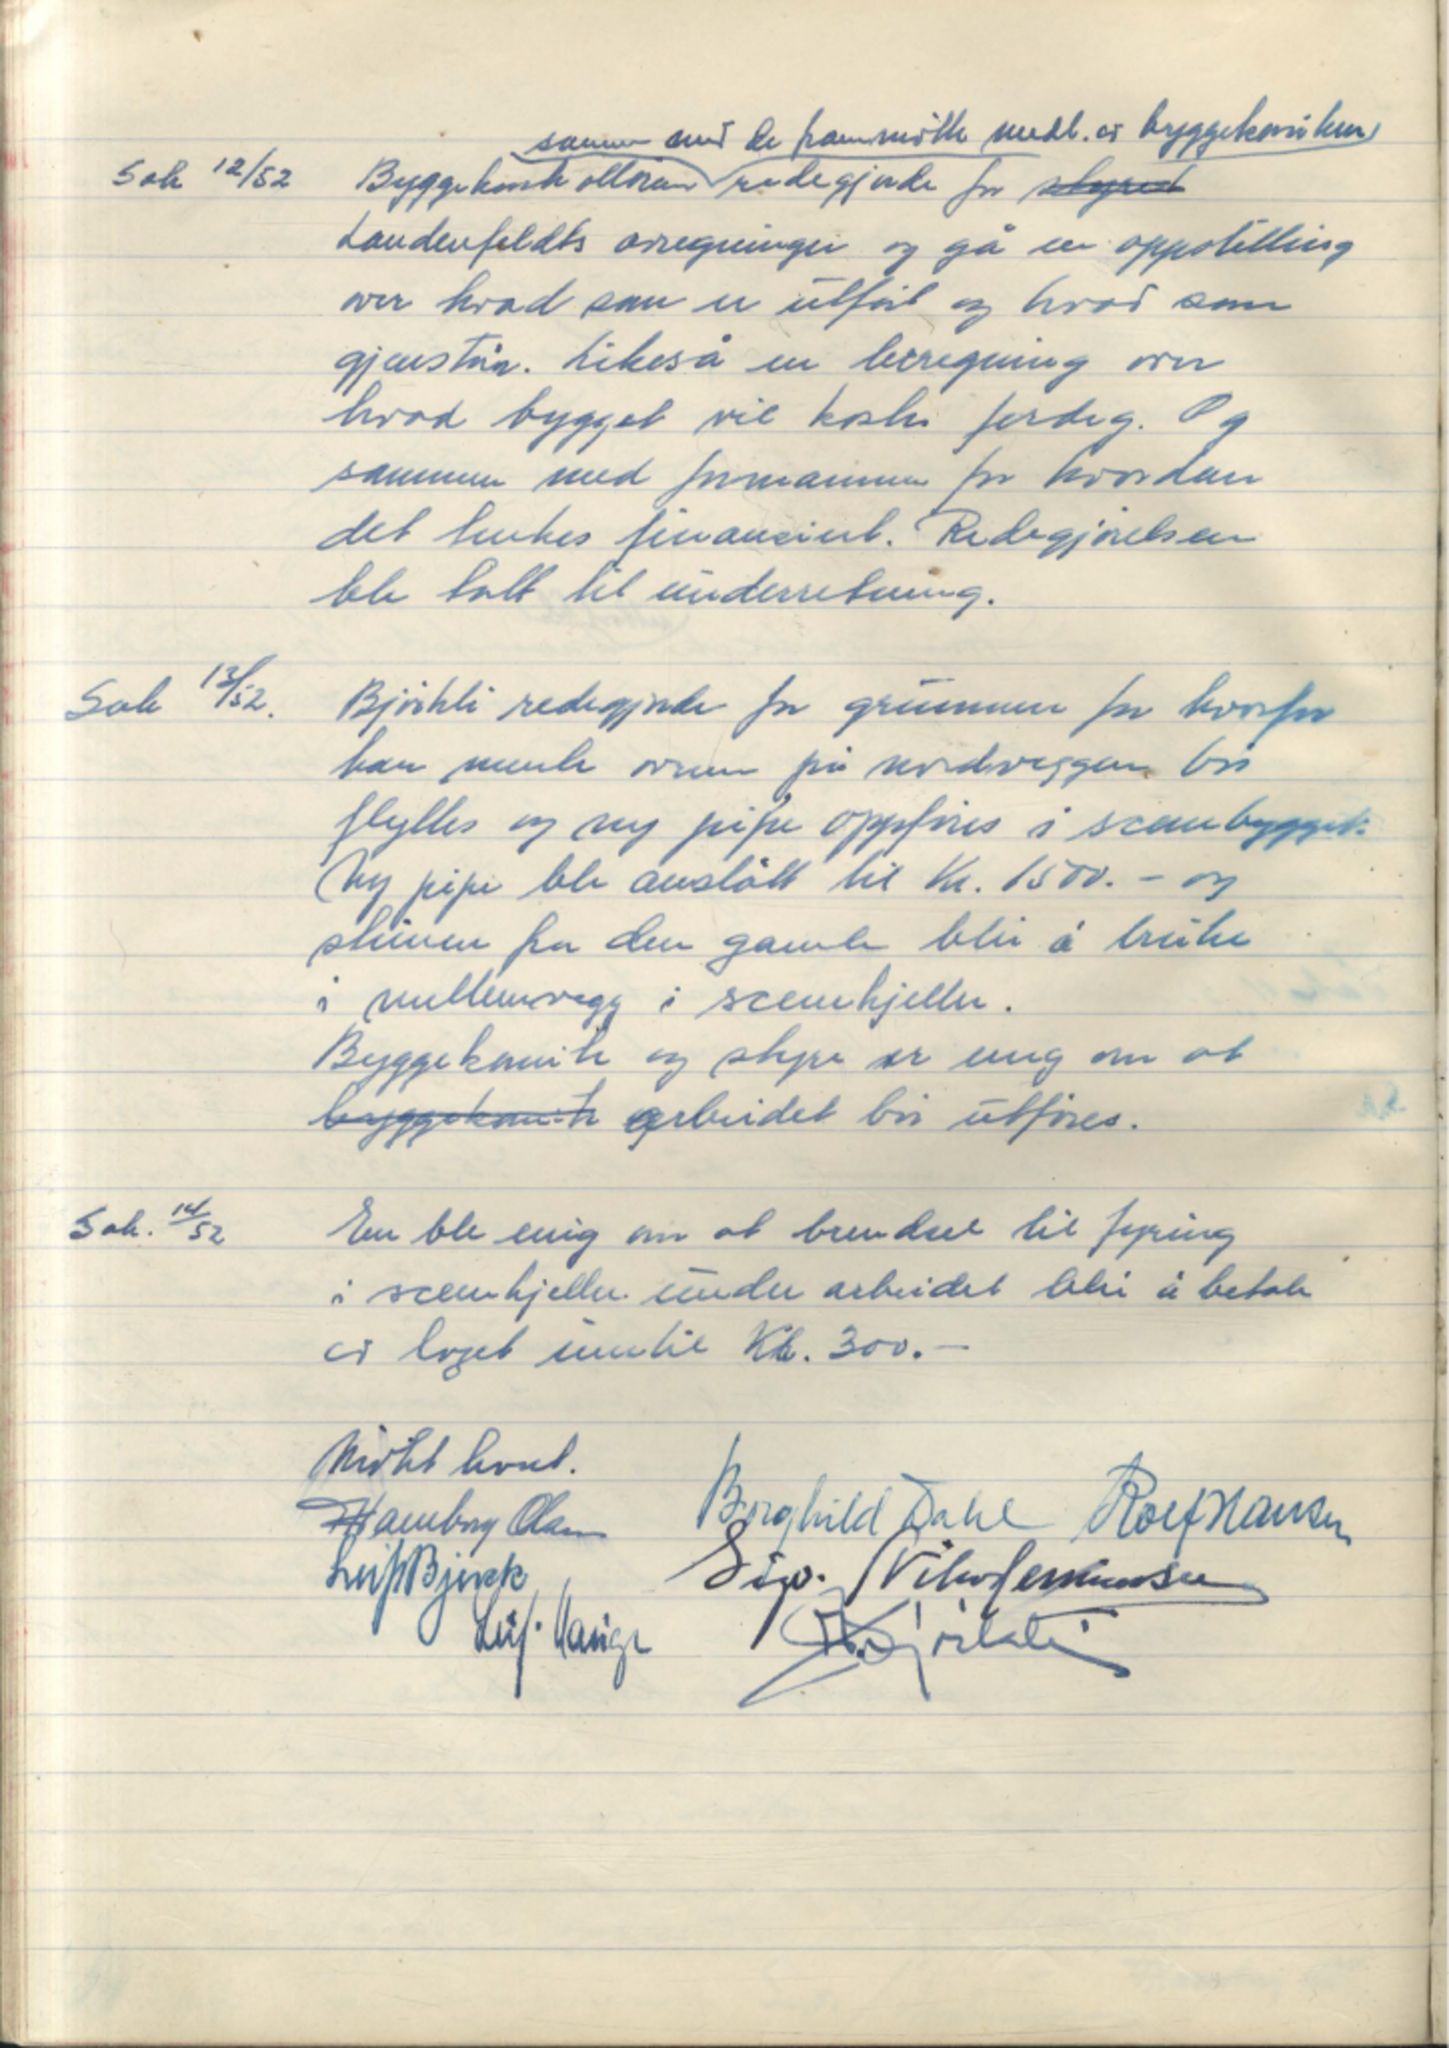 sammen med de frammøtte medl. av byggekomiteen
Sak 12/52 Byggekontrolløren redegjorde for styret
Laudenfeldts avregninger og gå en oppstilling
over hvad som er utført og hvad som
gjenstår. Likeså en beregning over
hvad bygget vil koste ferdig. Og
sammen med formannen for hvordan
det tenkes finansiert. Redegjørelsen
ble tatt til underretning.
Sak 13/52. Bjørkli redegjorde for grunnen for hvorfor
han mente ovnen på nordveggen bør
flyttes og ny pipe oppføres i scenebygget.
Ny pipe ble anslått til Kr. 1500.- og
steinen fra den gamle blir å bruke
i mellemvegg i scenekjeller.
Byggekomite og styre er enig om at
byggekomite arbeidet bør utføres.
Sak. 14/52 En ble enig om at brendsel til fyring
i scenekjeller under arbeidet blir å betale
av laget inntil Kr. 300.-
Møtet hevet.
Hamborg Olsen Borghild Dahl Rolf Hansen
Leif Bjerck Sigv.
Leif Hauge Bjørkli